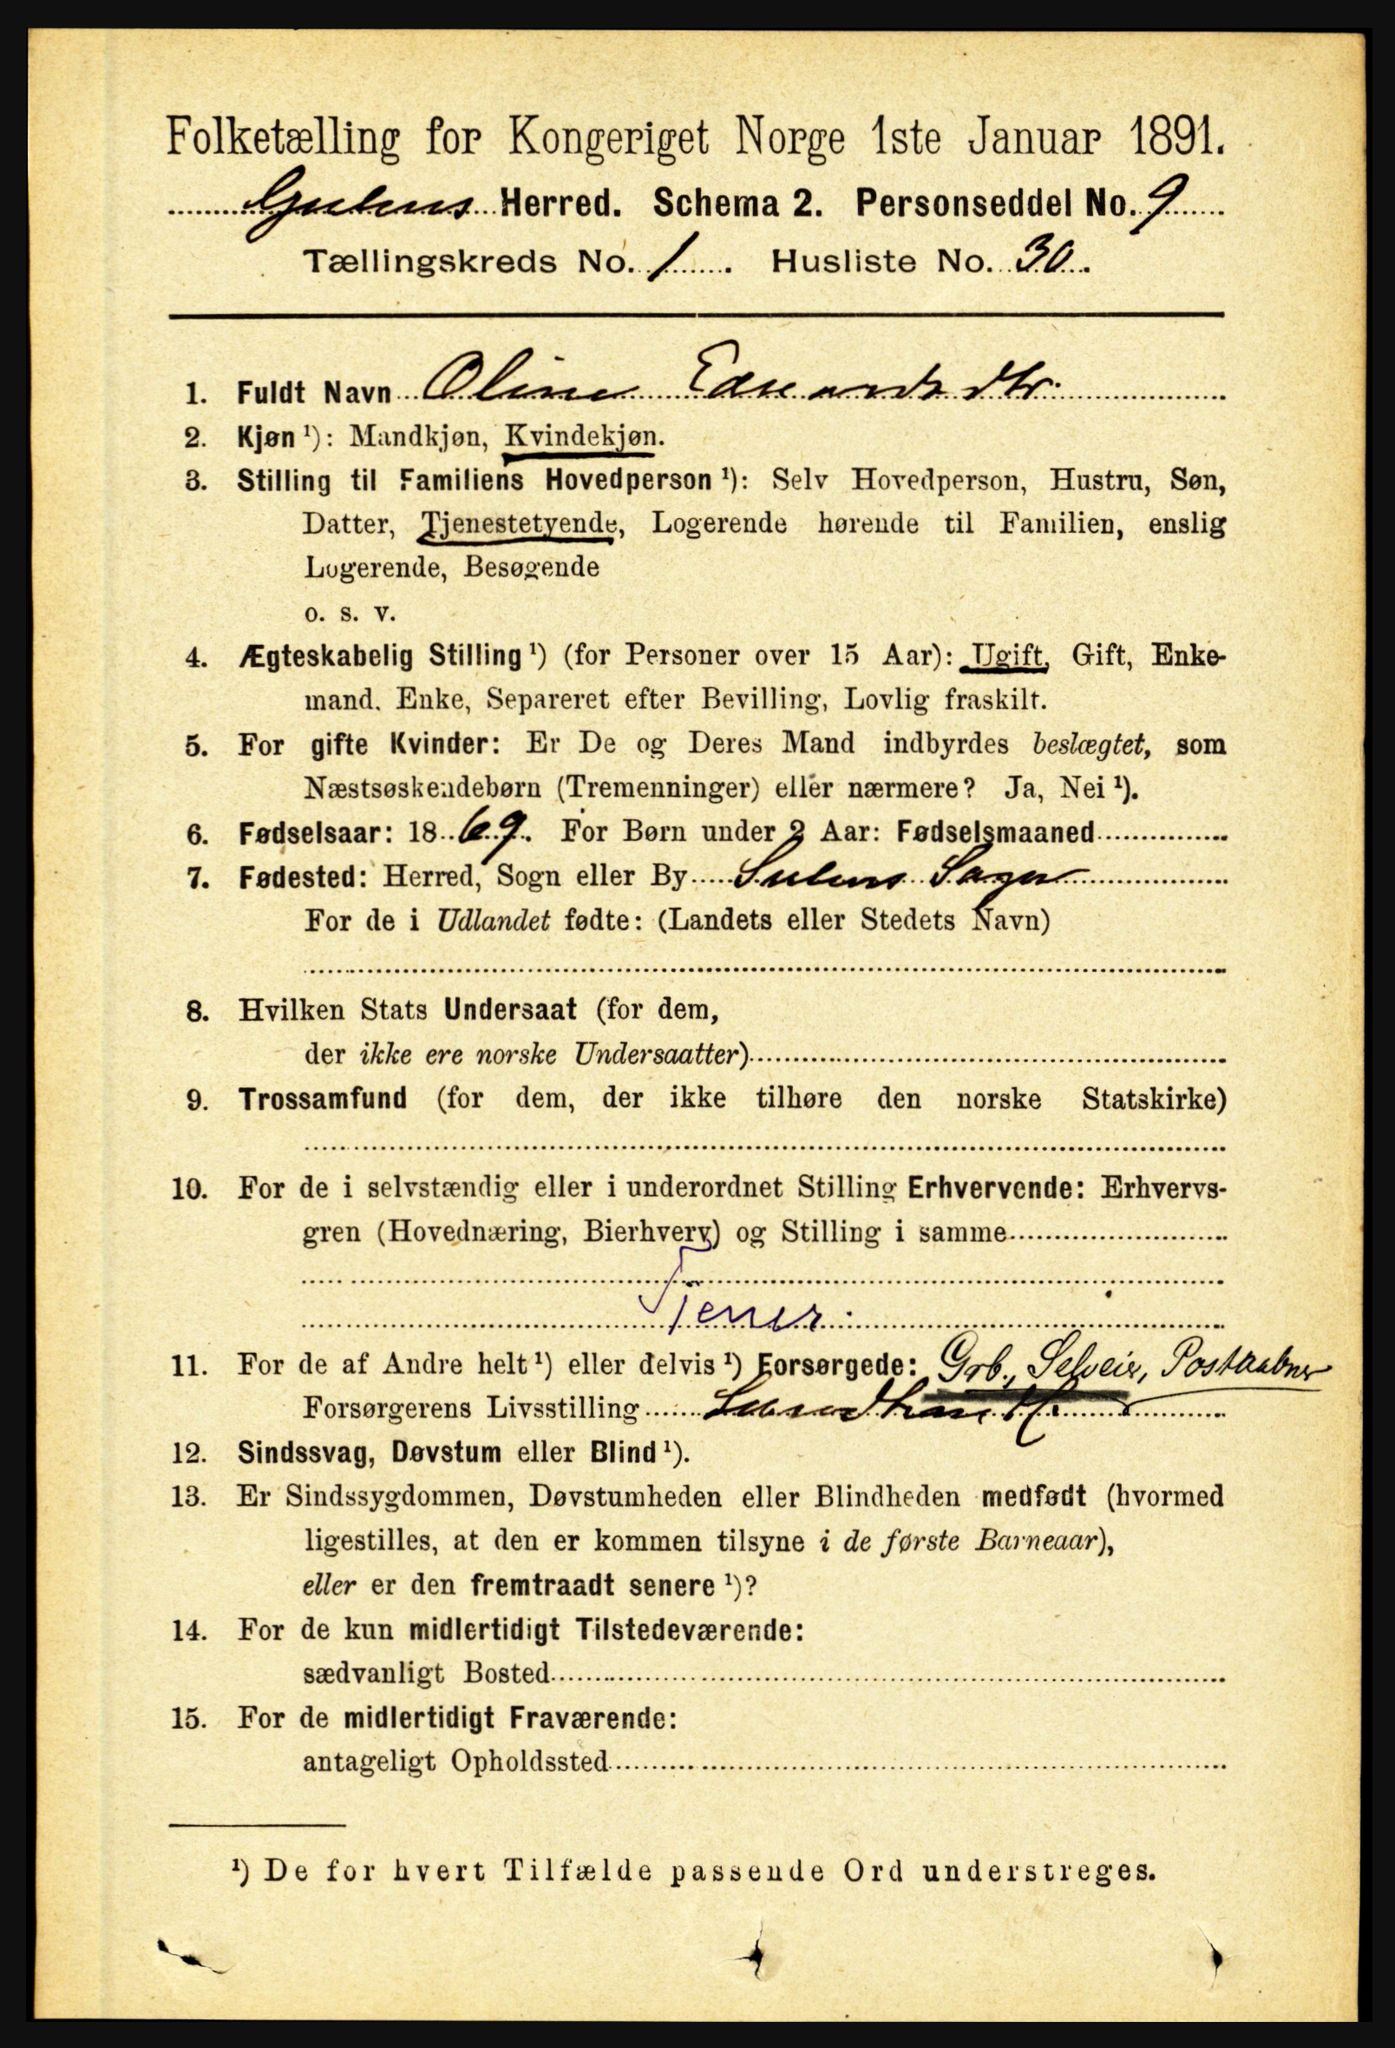 Folketælling for Kongeriget Norge 1ste Januar 1891.
Gulens Herred. Schema 2. Personseddel No. 9
Tællingskreds No. 1. Husliste No. 30.
1. Fuldt Navn Oline Edvardsdtr.
2. Kjøn ¹): Mandkjøn, Kvindekjøn.
3. Stilling til Familiens Hovedperson ¹): Selv Hovedperson, Hustru, Søn,
Datter, Tjenestetyende, Logerende hørende til Familien, enslig
Logerende, Besøgende
o. s. v.
4. Ægteskabelig Stilling ¹) (for Personer over 15 Aar): Ugift, Gift, Enke-
mand. Enke, Separeret efter Bevilling, Lovlig fraskilt.
5. For gifte Kvinder: Er De og Deres Mand indbyrdes beslægtet, som
Næstsøskendebørn (Tremenninger) eller nærmere? Ja, Nei ¹).
6. Fødselsaar: 1869. For Børn under 2 Aar: Fødselsmaaned
7. Fødested: Herred, Sogn eller By Sulens Sogn
For de i Udlandet fødte: (Landets eller Stedets Navn)
8. Hvilken Stats Undersaat (for dem,
der ikke ere norske Undersaatter)
9. Trossamfund (for dem, der ikke tilhøre den norske Statskirke)
10. For de i selvstændig eller i underordnet Stilling Erhvervende: Erhvervs-
gren (Hovednæring, Bierhverv) og Stilling i samme
Tjener.
11. For de af Andre helt ¹) eller delvis ¹) Forsørgede: Grb., Selveier, Postaabner
Forsørgerens Livsstilling Landhandler
12. Sindssvag, Døvstum eller Blind ¹).
13. Er Sindssygdommen, Døvstumheden eller Blindheden medfødt (hvormed
ligestilles, at den er kommen tilsyne i de første Barneaar),
eller er den fremtraadt senere ¹)?
14. For de kun midlertidigt Tilstedeværende:
sædvanligt Bosted
15. For de midlertidigt Fraværende:
antageligt Opholdssted
¹) De for hvert Tilfælde passende Ord understreges.